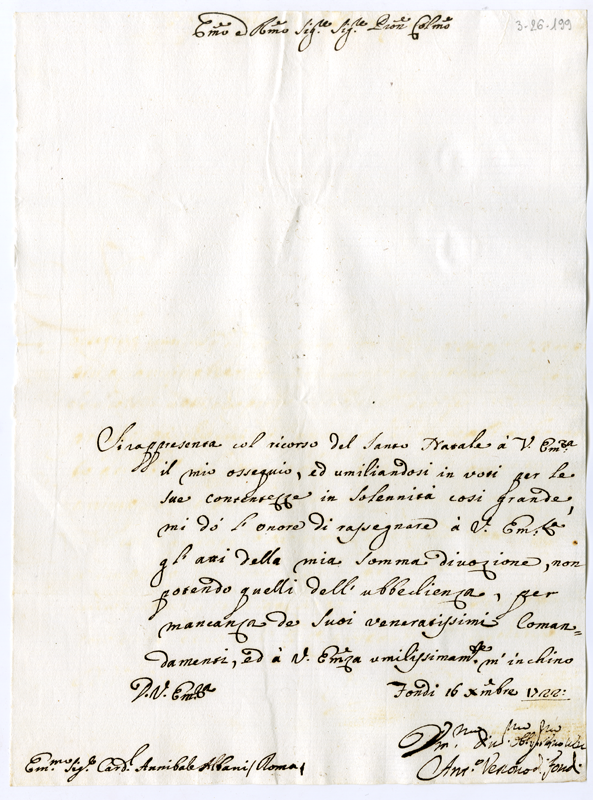 Em̃o e Rm̃o Sig.re Sig.re Pron̄ Colm̄o
3-26-199
Si rappresenta col ricorso del Santo Natale à V. Em.za
il mio ossequio, ed umiliandosi in voti per le
sue contentezze in Solennità così grande,
mi dò l'onore di rassegnare à V. Em.za
gl'atti della mia somma divozione, non
potendo quelli dell'ubbedienza, per
mancanza de Suoi veneratissimi Coman=
damenti, ed à V. Em̃za umilissimam.te m'inchino
D. V. Em.za
Fondi 16 Xm̄bre 1722:
Um.mo Div.mo
Ant.o Vescovo di Fondi
Em.mo Sig.r Card.l Annibale Albani / Roma /